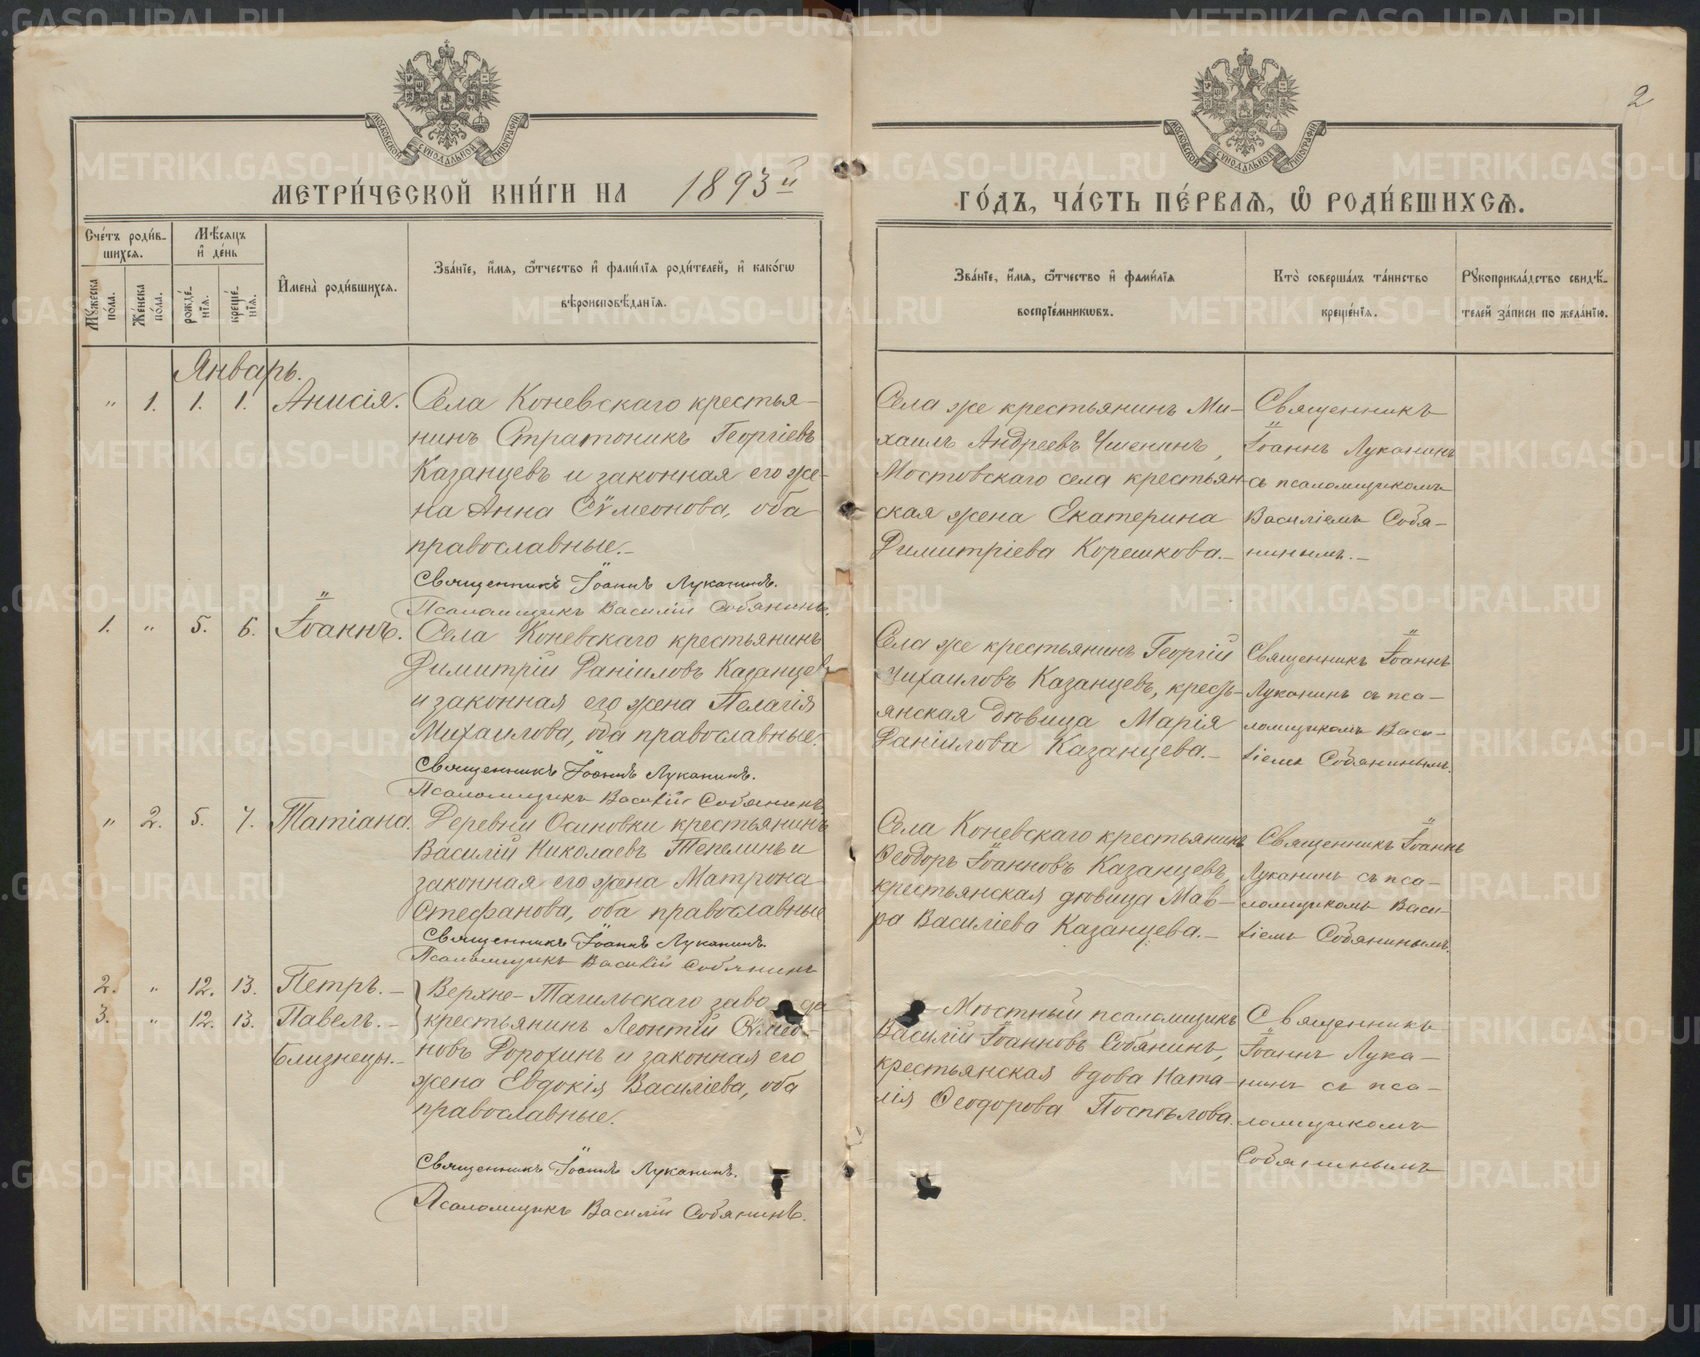 METRIKI.GASO-URAL.RU
2
МОСКОВСКОЙ СѴНОДАЛЬНОЙ ТИПОГРАФІИ
МОСКОВСКОЙ СѴНОДАЛЬНОЙ ТИПОГРАФІИ
МЕТРИ́ЧЕСКОЙ КНИ́ГИ НА 1893й
ГО́ДЪ, ЧА́СТЬ ПЕ́РВАѦ, Ѡ РОДИ́ВШИХСѦ.
Сче́тъ роди́в-
шихсѧ.
Мꙋ́жеска по́ла.
Же́нска по́ла.
Мѣ́сѧцъ
и҆ де́нь
рожде́-
нїѧ.
креще́-
нїѧ.
И҆мена̀ роди́вшихсѧ.
Зва́нїе, и҆́мѧ, ѻ҆́тчество и҆ фами́лїѧ роди́телей, и҆ како́гѡ
вѣроисповѣ́данїѧ.
Зва́нїе, и҆́мѧ, ѻ҆́тчество и҆ фами́лїѧ
воспрїе́мникѡвъ.
Кто̀ соверша́лъ та́инство
креще́нїѧ.
Рꙋкоприкла́дство свидѣ́-
телей за́писи по жела́нїю.
Январь.
" 1. 1. 1. Анисія.
Села Коневскаго крестья-
нинъ Стратоникъ Георгіевъ
Казанцевъ и законная его же-
на Анна Сѵмеонова, оба
православные.-
Священникъ Іоаннъ Луканинъ.
Псаломщикъ Василій Собянинъ.
Села же крестьянинъ Ми-
хаилъ Андреевъ
Мостовскаго села крестьян-
ская жена Екатерина
Димитріева Корешкова.-
Священникъ
Іоаннъ Луканинъ
съ псаломщикомъ
Василіемъ Собя-
нинымъ.-
1. " 5. 6. Іоаннъ.
Села Коневскаго крестьянинъ
Димитрій Даніиловъ Казанцевъ
и законная его жена Пелагія
Михаилова, оба православные.
Священникъ Іоаннъ Луканинъ.
Псаломщикъ Василій Собянинъ
Села же крестьянинъ Георгій
Михаиловъ Казанцевъ, кресть-
янская дѣвица Марія
Даніилова Казанцева.-
Священникъ Іоаннъ
Луканинъ съ пса-
ломщикомъ Васи-
ліемъ Собянинымъ.
" 2. 5. 7. Татіана.
Деревни Осиновки крестьянинъ
Василій Николаевъ и
законная его жена Матрона
Стефанова, оба православные
Священникъ Іоаннъ Луканинъ
Псаломщикъ Василій Собянинъ
Села Коневскаго крестьянинъ
Ѳеодоръ Іоанновъ Казанцевъ,
крестьянская дѣвица Мав-
ра Василіева Казанцева.-
Священникъ Іоаннъ
Луканинъ съ пса-
ломщикомъ Васи-
ліемъ Собянинымъ.
2. " 12. 13. Петръ.-
3. " 12. 13. Павелъ.-
Близнецы.-
Верхне-Тагильскаго завода
крестьянинъ Леонтій Сѵмео-
новъ Дорохинъ и законная его
жена Евдокія Василіева, оба
православные.
Священникъ Іоаннъ Луканинъ.
Псаломщикъ Василій Собянинъ.
Мѣстный псаломщикъ
Василій Іоанновъ Собянинъ,
крестьянская вдова Ната-
лія Ѳеодорова Поспѣлова.
Священникъ
Іоаннъ Лука-
нинъ съ пса-
ломщикомъ
Собянинымъ